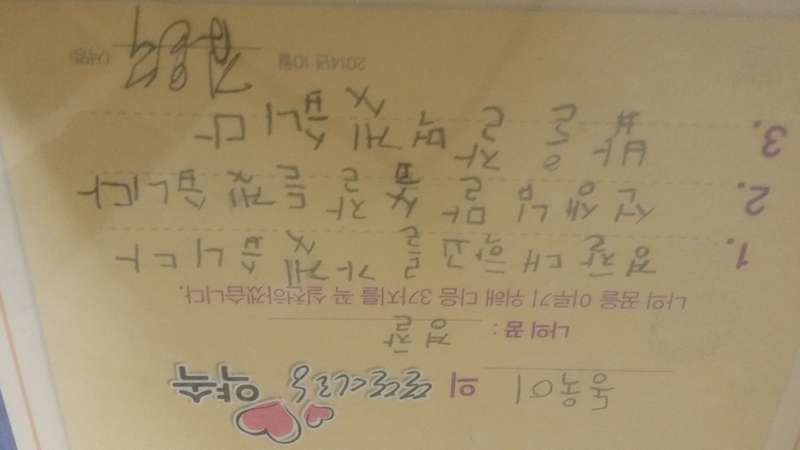 동욱이 의 약속
나의 꿈 : 경찰
나의 꿈을 이루기 위해 다음 3가지를 꼭 실천하겠습니다.
1. 경찰대학교를 가겠습니다
2. 선생님 말씀 잘 듣겠습니다
3. 밥을 잘 먹겠습니다
2014년 10월 김동욱 (서명)